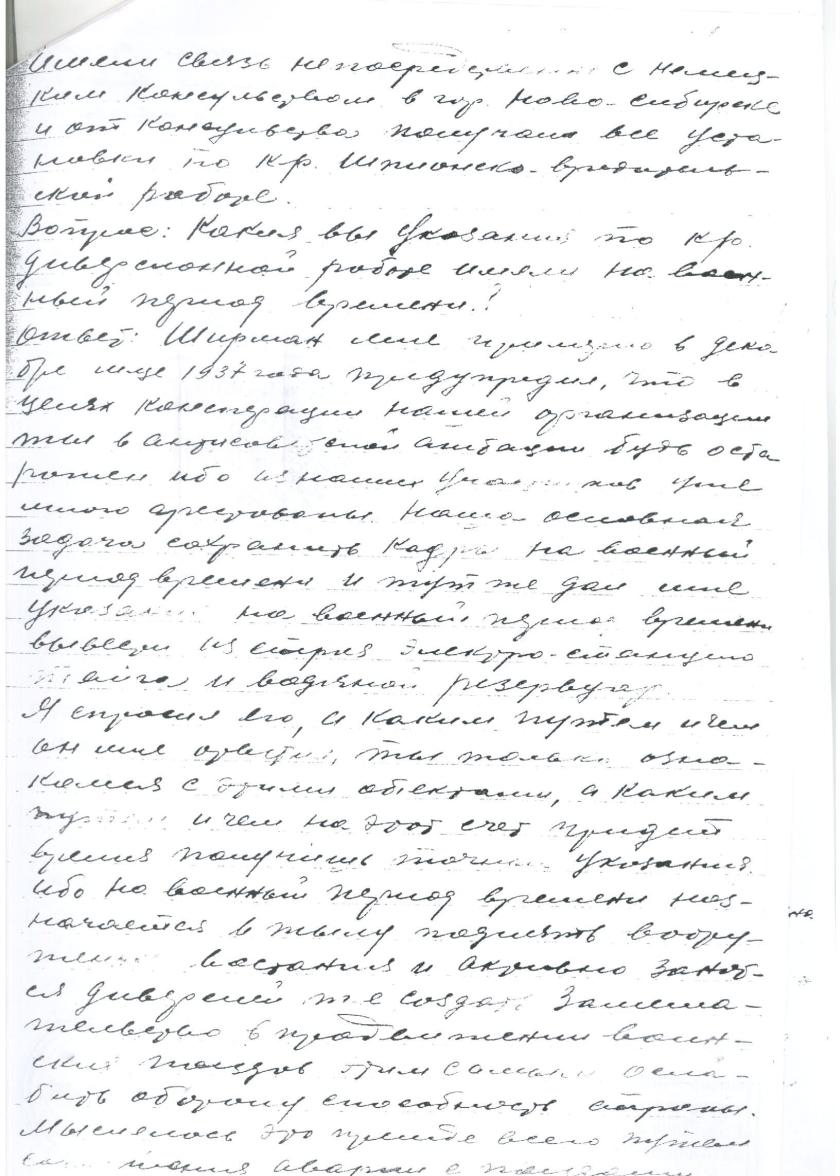 имели связь непосредственно с немец-
ким консульством в гор. Ново-сибирске
и от консульства получали все уста-
новки по к.р. шпионско-вредитель-
ской работе.
Вопрос: Какия вы указания по к.р.
диверсионной работе имели на воен-
ный период времени?
Ответ: Ширман мне примерно в дека
бре м-це 1937 года предупредил, что в
целях конспирации нашей организации
ты в антисоветской агитации будь оста
рожен ибо из наших участников уже
много арестованы. Наша основная
задача сохранить кадры на военный
период времени и тут же дал мне
указания на военный период времени
вывести из строя электро-станцию
Тайга и водяной резервуар.
Я спросил его, а каким путем и чем
он мне ответил, ты только озна-
комься с этими объектами, а каким
путем и чем на этот счет придет
время получишь точные указания
ибо на военный период времени наз-
начается в тылу поднять воору-
женные востания и активно занят-
ся диверсией т.е создать замеша-
тельство в продвижении воин-
ских поездов этим самым осла-
бить оборону способность страны.
Мыслилось это прежде всего путем
аварии с поездами